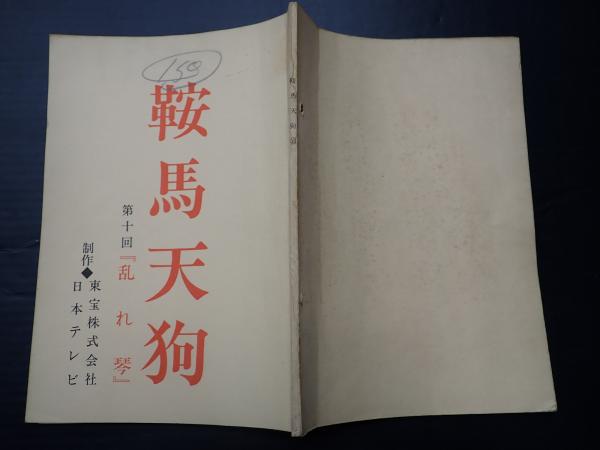 150
鞍馬天狗
第十回『乱れ琴』
制作◆東宝株式会社
日本テレビ
鞍馬天狗